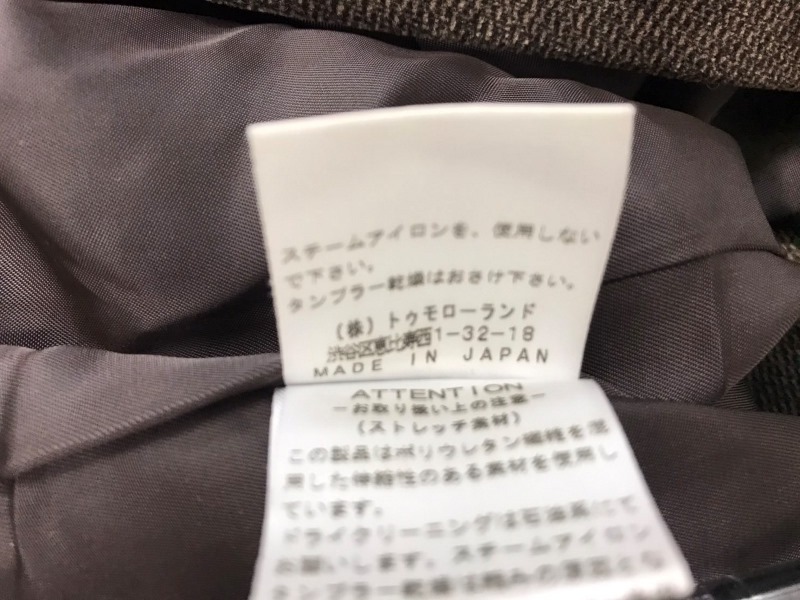 スチームアイロンを、使用しない
で下さい。
タンブラー乾燥はおさけ下さい。
(株)トゥモローランド
渋谷区恵比寿西1-32-18
MADE IN JAPAN
ATTENTION
－お取り扱い上の注意－
(ストレッチ素材)
この製品はポリウレタン繊維を混
用した伸縮性のある素材を使用し
ています。
ドライクリーニングは石油系にて
お願いします。スチームアイロン
タンブラー乾燥は